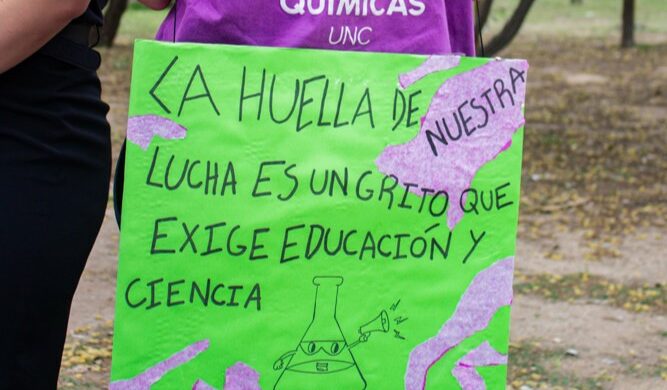 QUÍMICAS
UNC
LA HUELLA DE NUESTRA
LUCHA ES UN GRITO QUE
EXIGE EDUCACIÓN Y
CIENCIA